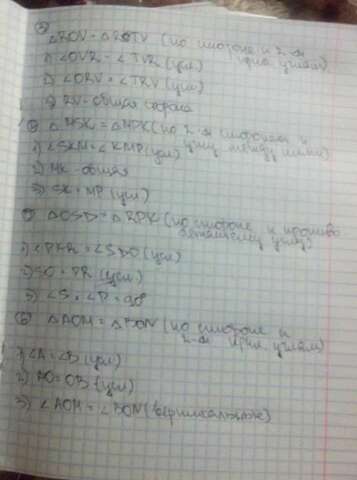 △ROV = △ROTV (по стороне и 2-м
прил углам)
1) ∠OVR = ∠TVR (усл)
2) ∠ORV = ∠TRV (усл)
3) RV - общая сторона
△MSK = △MPK (по 2-м сторонам и
углу между ними)
1) ∠SKM = ∠KMP (усл)
2) MK - общая
3) SK = MP (усл)
△OSD = △RPK (по стороне и
углу)
1) ∠PKR = ∠SDO (усл)
2) SO = PR (усл)
3) ∠S = ∠P = 90°
⑥ △AOM = △BON (по стороне и
2-м прил углам)
1) ∠A = ∠B (усл)
2) AO = OB (усл)
3) ∠AOM = ∠BON (вертикальные)